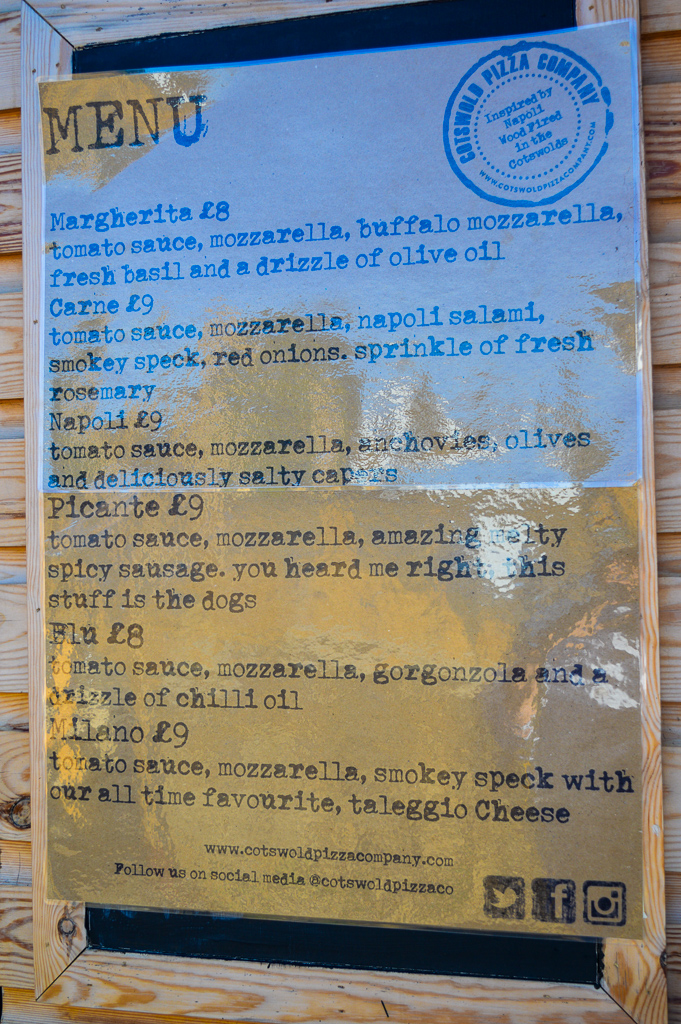 MENU
COTSWOLD PIZZA COMPANY
Inspired by
Napoli
Wood Fired
in the
Cotswolds
WWW.COTSWOLDPIZZACOMPANY.COM
Margherita £8
tomato sauce, mozzarella, buffalo mozzarella,
fresh basil and a drizzle of olive oil
Carne £9
tomato sauce, mozzarella, napoli salami,
smokey speck, red onions. sprinkle of fresh
rosemary
Napoli £9
tomato sauce, mozzarella, anchovies, olives
and deliciously salty capers
Picante £9
tomato sauce, mozzarella, amazing salty
spicy sausage. you heard me right, this
stuff is the dogs
Blu £8
tomato sauce, mozzarella, gorgonzola and a
drizzle of chilli oil
Milano £9
tomato sauce, mozzarella, smokey speck with
our all time favourite, taleggio Cheese
www.cotswoldpizzacompany.com
Follow us on social media @cotswoldpizzaco